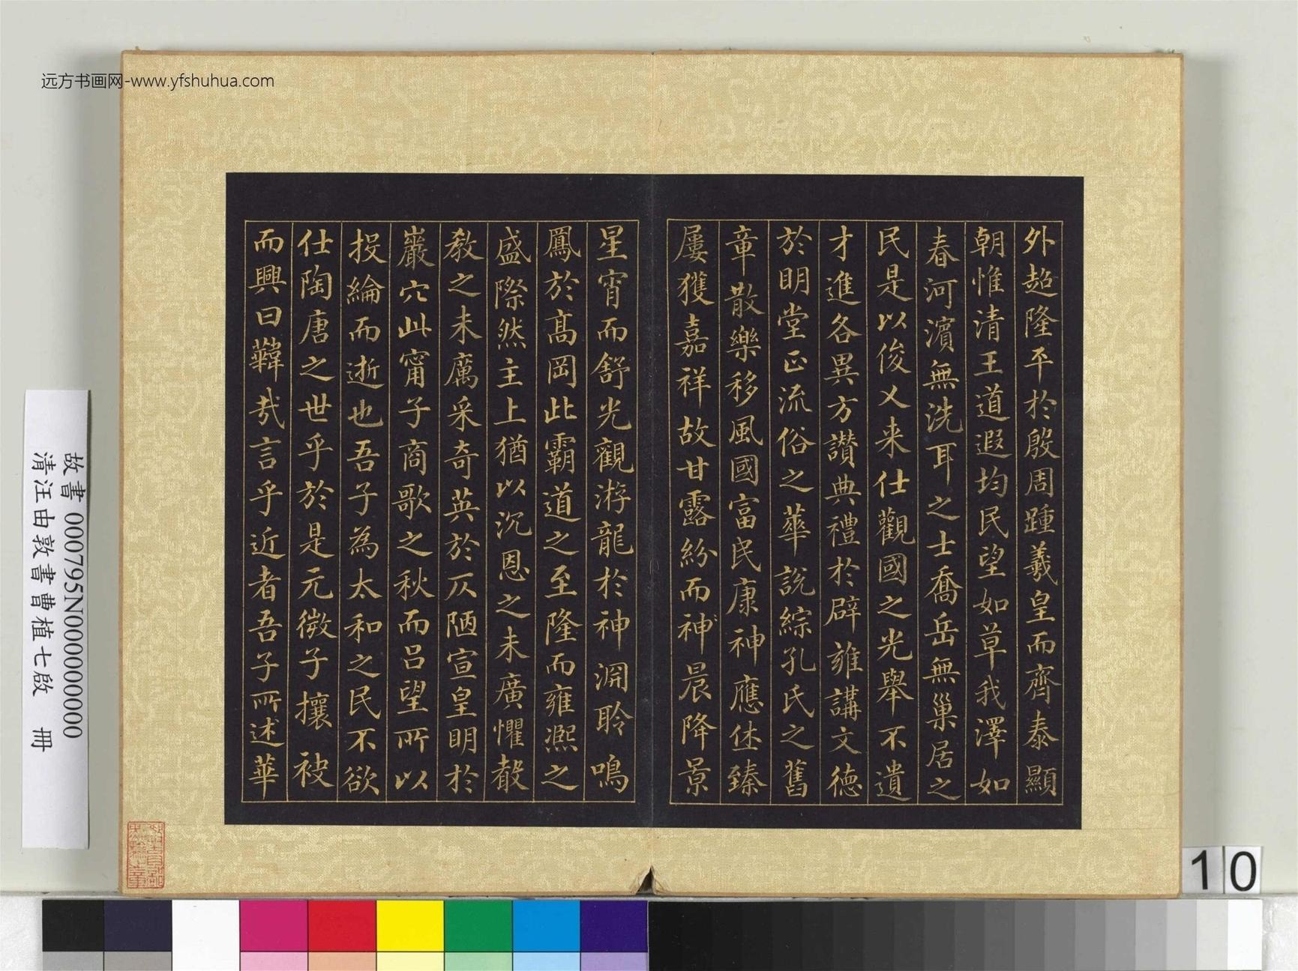 远方书画网-www.yfshuhua.com
外超隆平於殷周踵羲皇而齊泰顯
朝惟清王道遐均民望如草我澤如
春河濱無洗耳之士喬岳無巢居之
民是以俊乂来仕觀國之光舉不遺
才進各異方讚典禮於辟雍講文德
於明堂正流俗之華說綜孔氏之舊
章散樂移風國富民康神應休臻
屢獲嘉祥故甘露紛而神晨降景
星宵而舒光觀游龍於神淵聆鳴
鳳於高岡此霸道之至隆而雍熙之
盛際然主上猶以沉恩之未廣懼聲
教之未厲采奇英於仄陋宣皇明於
巖穴此甯子商歌之秋而呂望所以
投綸而逝也吾子為太和之民不欲
仕陶唐之世乎於是元微子攘袂
而興曰韡哉言乎近者吾子所述華
故書 000795N000000000
清汪由敦書曹植七啟 冊
10